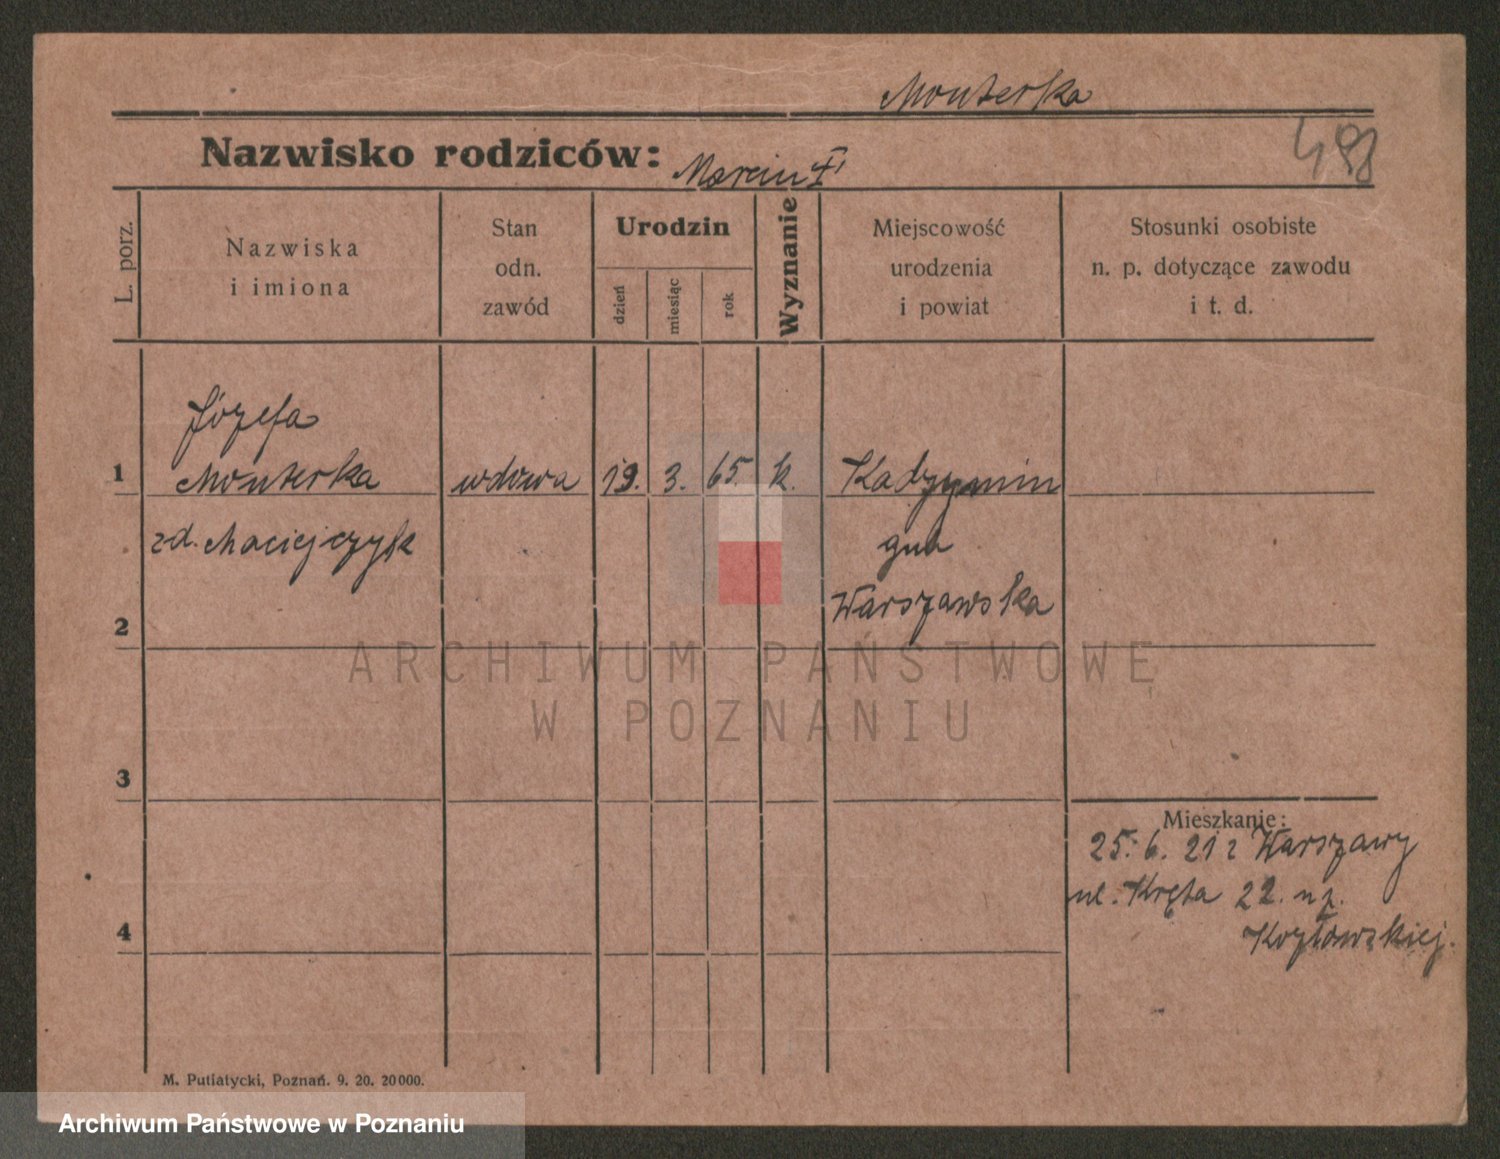 Monterka
Nazwisko rodziców: Marcin †
498
L. porz.
Nazwiska
i imiona
Stan
odn.
zawód
Urodzin
dzień
miesiąc
rok
Wyznanie
Miejscowość
urodzenia
i powiat
Stosunki osobiste
n. p. dotyczące zawodu
i t. d.
Józefa
1 Monterka wdowa 19. 3. 65. k. Kadzymin
zd. Maciejczyk
gub
2 Warszawska
ARCHIWUM PAŃSTWOWE
W POZNANIU
3
Mieszkanie:
25. 6. 21 z Warszawy
ul. Kręta 22. np.
4 Kozłowskiej.
M. Putiatycki, Poznań. 9. 20. 20000.
Archiwum Państwowe w Poznaniu